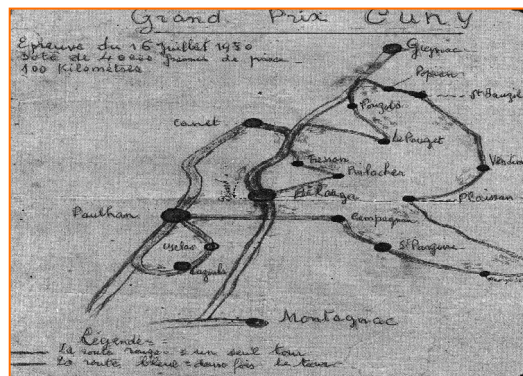 Grand Prix Cuny
Epreuve du 16 Juillet 1950
Doté de 40000 francs de primes
100 Kilomètres
Gignac
Popian
St Bauzille
Pouzols
Canet
Le Pouget
Tressan
Puilacher
Vendém
Bélarga
Plaissan
Paulhan
Campagnan
Usclas
St Pargoire
Cazouls
Montagnac
Légende =
La route rouge = un seul tour
La route bleue = deux fois le tour